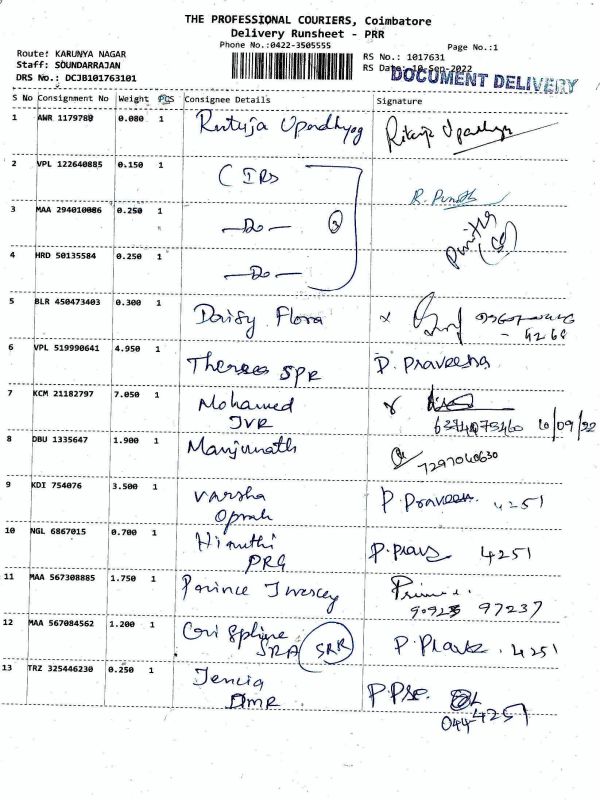 THE PROFESSIONAL COURIERS, Coimbatore
Delivery Runsheet - PRR
Phone No.:0422-3505555
Page No.:1
Route: KARUNYA NAGAR
RS No.: 1017631
Staff: SOUNDARRAJAN
RS Date: 10-Sep-2022
DRS No.: DCJB101763101
DOCUMENT DELIVERY
S No Consignment No Weight PCS Consignee Details Signature
1 AWR 1179780 0.080 1 Rutuja Upadhyay
2 VPL 122640885 0.150 1 CIRs R. Punith
3 MAA 294010086 0.250 1 —Do— 3 Punith
4 HRD 50135584 0.250 1 —Do—
5 BLR 450473403 0.300 1 Daisy Flora x
- 4268
6 VPL 519990641 4.950 1 Theress SPR P. Praveesha
7 KCM 21182797 7.050 1 Mohamed
JVR 6374075460 10/09/22
8 DBU 1335647 1.900 1 Manjunath
7297060630
9 KDI 754076 3.500 1 Varsha P. Praveen. 4251
Oprah
10 NGL 6867015 0.700 1 P. Prav 4251
PRG
11 MAA 567308885 1.750 1 Prince
97237
12 MAA 567084562 1.200 1 P. Prave . 4251
SRA SRR
13 TRZ 325446230 0.250 1 Jencia
DMR 044-4251